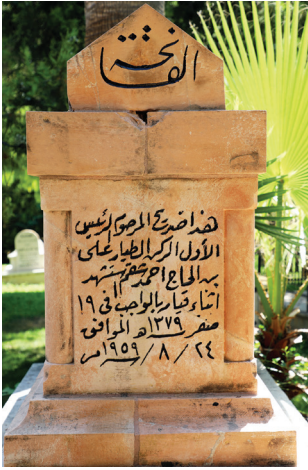 الفاتحة
هذا ضريح المرحوم الرئيس
الأول الركن الطيار علي
بن الحاج احمد استشهد
اثناء قيامه بالواجب في ١٩
صفر ١٣٧٩هـ الموافق
٢٤ / ٨ / ١٩٥٩م